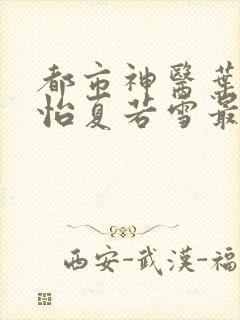 都市神醫葉
怡夏若雪最
西安-武漢-福